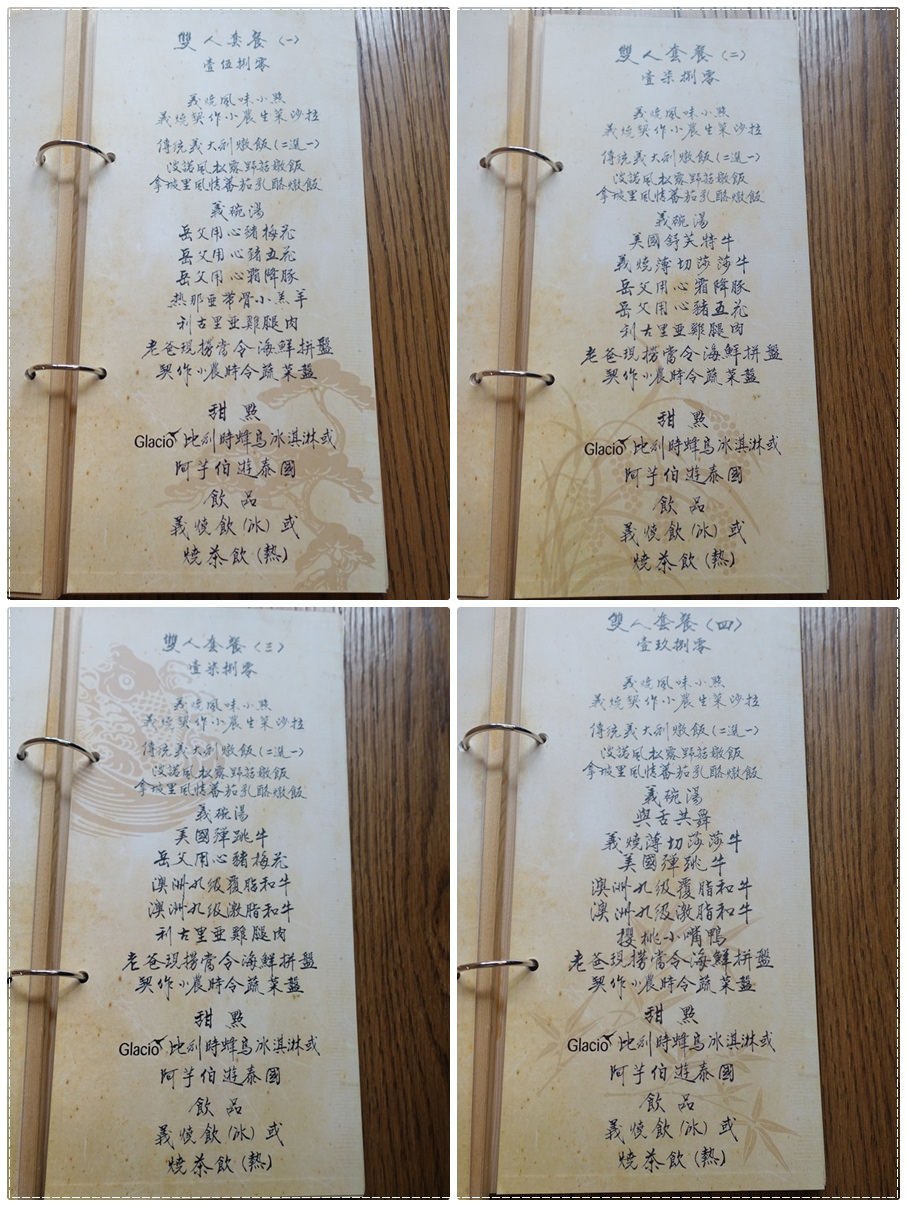 雙人套餐(一)
壹伍捌零
義燒風味小點
義燒契作小農生菜沙拉
傳統義大利燉飯(二選一)
波諾風松露野菇燉飯
拿坡里風情蕃茄乳酪燉飯
義碗湯
岳父用心豬梅花
岳父用心豬五花
岳父用心霜降豚
熱那亞帶骨小羔羊
利古里亞雞腿肉
老爸現撈當令海鮮拼盤
契作小農時令蔬菜盤
甜點
Glacio 比利時蜂鳥冰淇淋或
阿芋伯遊泰國
飲品
義燒飲(冰)或
燒茶飲(熱)
雙人套餐(二)
壹柒捌零
義燒風味小點
義燒契作小農生菜沙拉
傳統義大利燉飯(二選一)
波諾風松露野菇燉飯
拿坡里風情蕃茄乳酪燉飯
義碗湯
美國舒芙特牛
義燒薄切莎莎牛
岳父用心霜降豚
岳父用心豬五花
利古里亞雞腿肉
老爸現撈當令海鮮拼盤
契作小農時令蔬菜盤
甜點
Glacio 比利時蜂鳥冰淇淋或
阿芋伯遊泰國
飲品
義燒飲(冰)或
燒茶飲(熱)
雙人套餐(三)
壹柒捌零
義燒風味小點
義燒契作小農生菜沙拉
傳統義大利燉飯(二選一)
波諾風松露野菇燉飯
拿坡里風情蕃茄乳酪燉飯
義碗湯
美國彈跳牛
岳父用心豬梅花
澳洲九級覆脂和牛
澳洲九級激脂和牛
利古里亞雞腿肉
老爸現撈當令海鮮拼盤
契作小農時令蔬菜盤
甜點
Glacio 比利時蜂鳥冰淇淋或
阿芋伯遊泰國
飲品
義燒飲(冰)或
燒茶飲(熱)
雙人套餐(四)
壹玖捌零
義燒風味小點
義燒契作小農生菜沙拉
傳統義大利燉飯(二選一)
波諾風松露野菇燉飯
拿坡里風情蕃茄乳酪燉飯
義碗湯
與舌共舞
義燒薄切莎莎牛
美國彈跳牛
澳洲九級覆脂和牛
澳洲九級激脂和牛
櫻桃小嘴鴨
老爸現撈當令海鮮拼盤
契作小農時令蔬菜盤
甜點
Glacio 比利時蜂鳥冰淇淋或
阿芋伯遊泰國
飲品
義燒飲(冰)或
燒茶飲(熱)